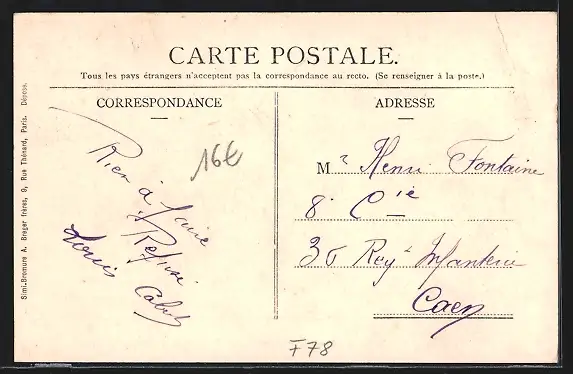 CARTE POSTALE.
Tous les pays étrangers n'acceptent pas la correspondance au recto. (Se renseigner à la poste.)
CORRESPONDANCE
Rien à faire
Refusé
Louis
16€
ADRESSE
Mr Henri Fontaine
8e Cie
36 Regt Infanterie
Caen
F78
Simi-Bromure A. Breger frères, 9, Rue Thénard, Paris. Déposé.